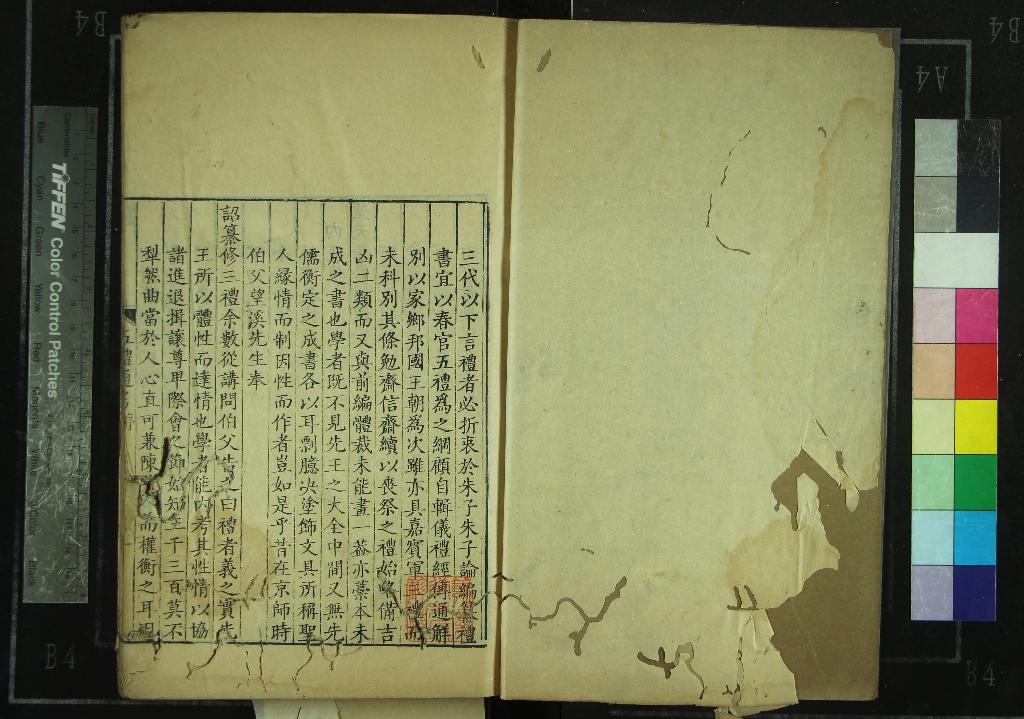 三代以下言禮者必折衷於朱子朱子論編纂禮
書宜以春官五禮為之綱顧自輯儀禮經傳通解
別以家鄉邦國王朝為次雖亦具嘉賓軍禮而
未科別其條勉齋信齋續以喪祭之禮始略備吉
凶二類而又與前編體裁未能畫一蓋亦藁本未
成之書也學者既不見先王之大全中間又無先
儒衡定之成書各以耳剽臆决塗飾文具所稱聖
人緣情而制因性而作者豈如是乎昔在京師時
伯父望溪先生奉
詔纂修三禮余數從講問伯父告之曰禮者義之實先
王所以體性而達情也學者能內考其性情以協
諸進退揖讓尊卑際會之節始知三千三百莫不
犁然曲當於人心直可兼陳而權衡之耳
五禮通考
TIFFEN Color Control Patches
Blue Cyan Green Yellow Red Magenta White Black
Centimetres Inches
B4
B4
A4
B4
B4